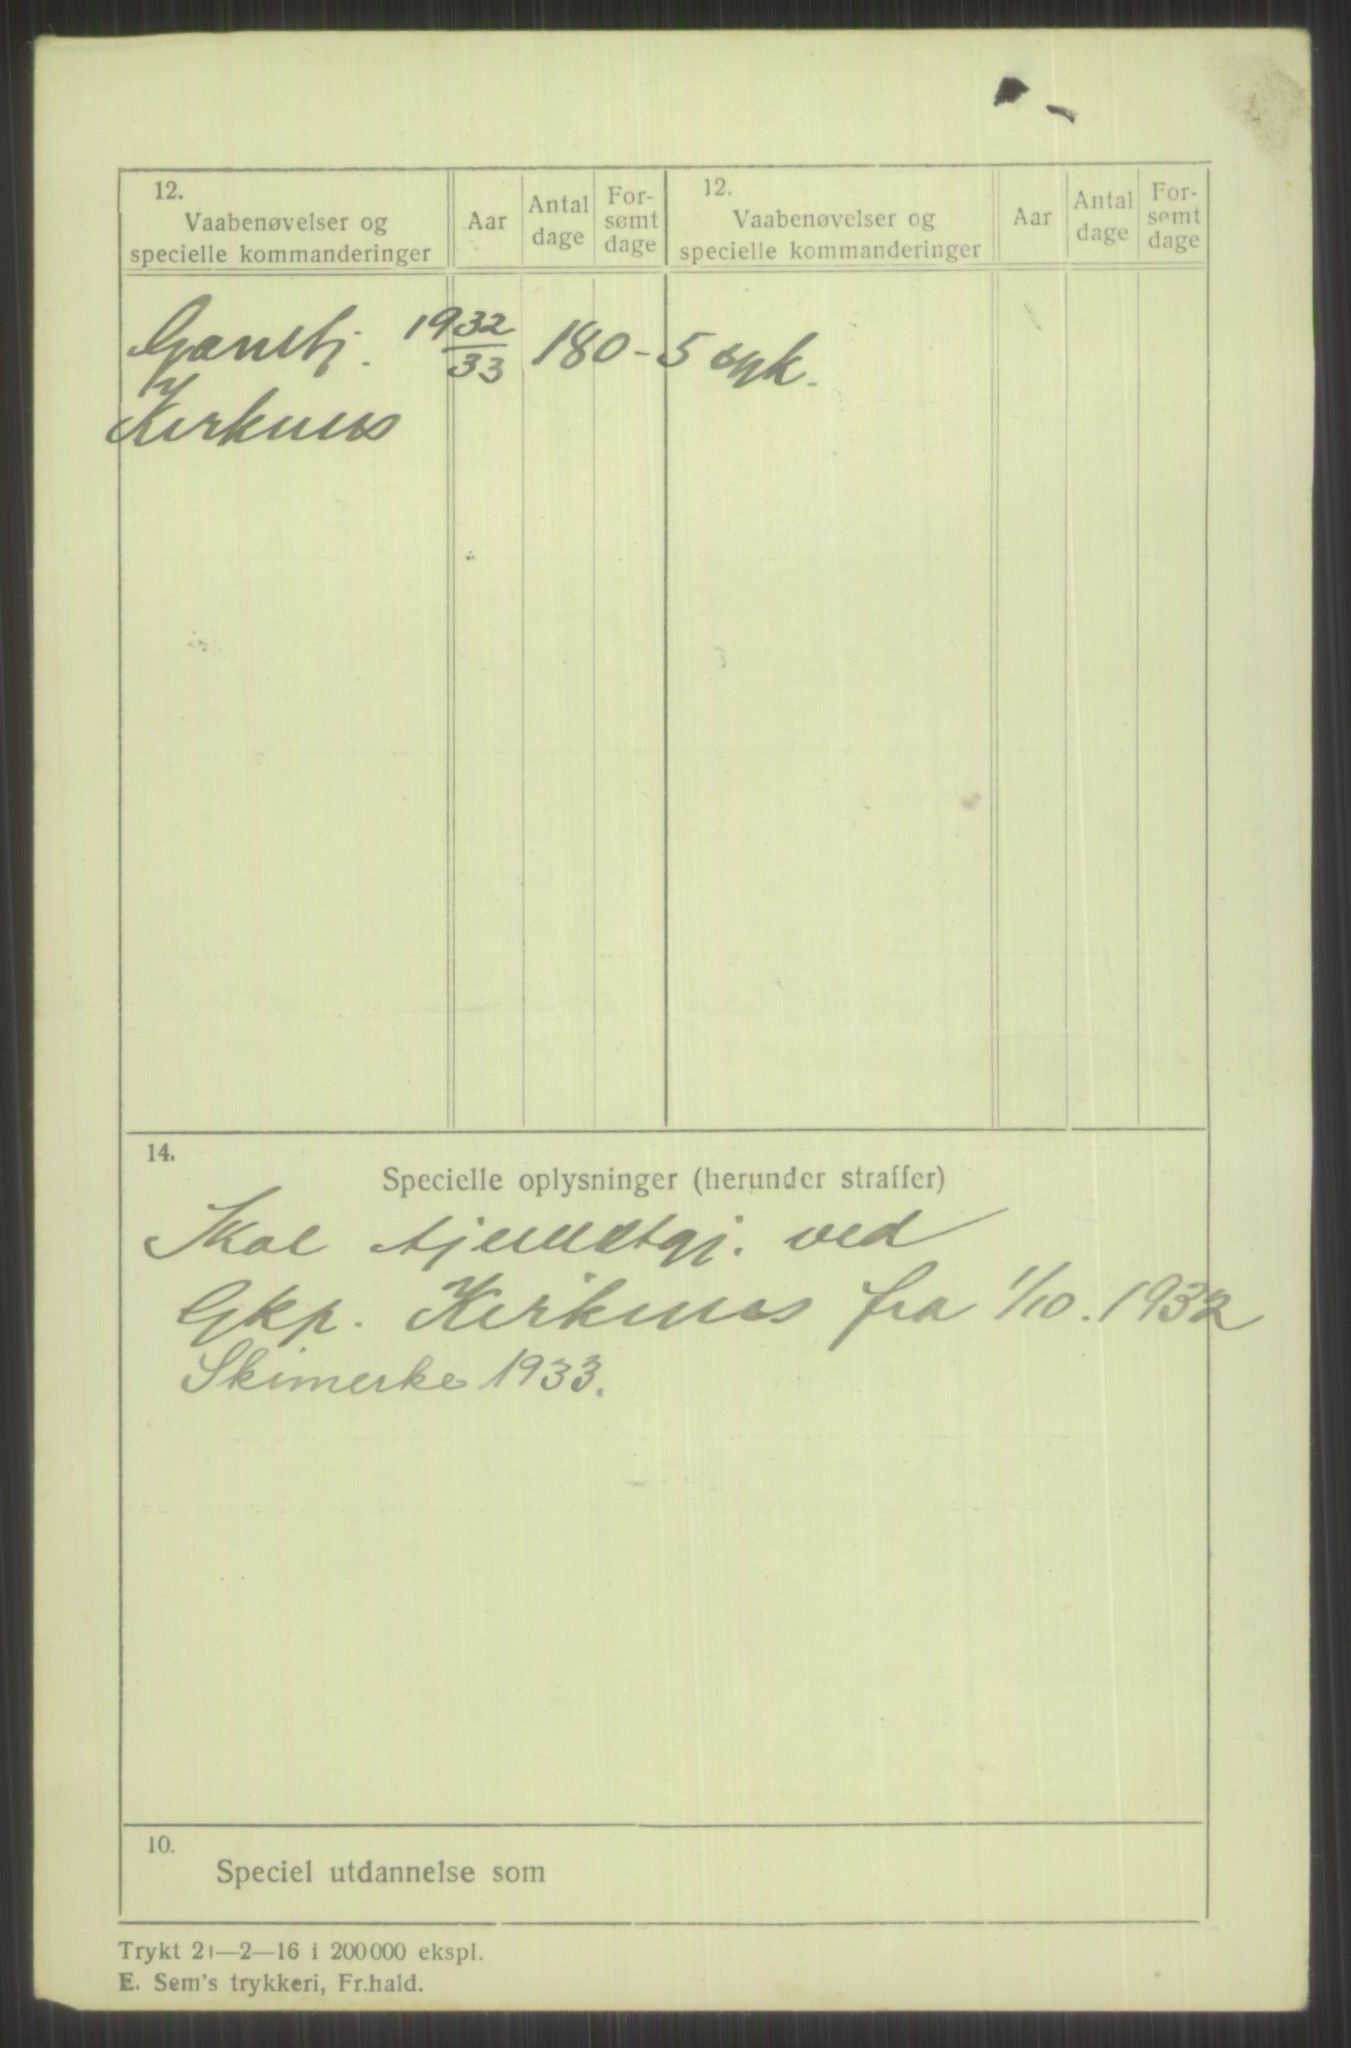 12.
Vaabenøvelser og
specielle kommanderinger
Aar
Antal
dage
For-
sømt
dage
12.
Vaabenøvelser og
specielle kommanderinger
Aar
Antal
dage
For-
sømt
dage
Garstj. 1932/33 180 - 5 syk.
Kirknes
14.
Specielle oplysninger (herunder straffer)
Skal tjenestgj. ved
Gkp. Kirknes fra 1/10. 1932
Skimerke 1933.
10.
Speciel utdannelse som
Trykt 21—2—16 i 200000 ekspl.
E. Sem's trykkeri, Fr.hald.